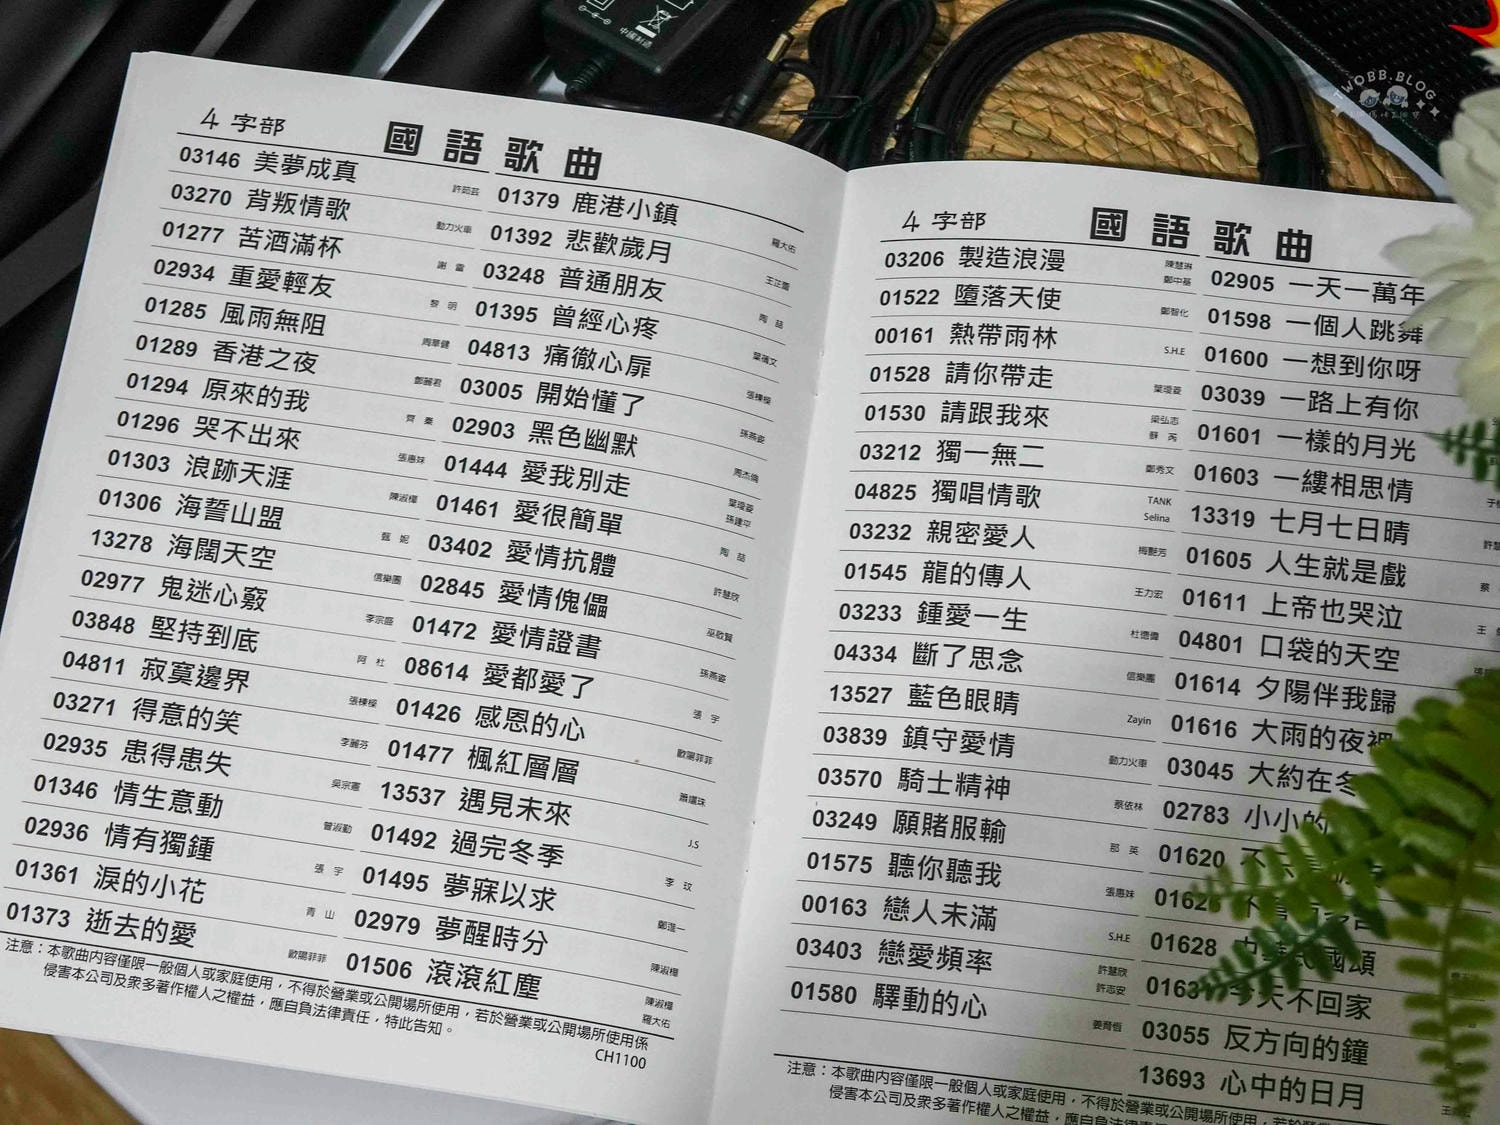 中國製造
TWOBB.BLOG
4 字部
國語歌曲
03146 美夢成真 許茹芸
03270 背叛情歌 動力火車
01277 苦酒滿杯 謝 雷
02934 重愛輕友 黎 明
01285 風雨無阻 周華健
01289 香港之夜 鄧麗君
01294 原來的我 齊 秦
01296 哭不出來 張惠妹
01303 浪跡天涯 陳淑樺
01306 海誓山盟 甄 妮
13278 海闊天空 信樂團
02977 鬼迷心竅 李宗盛
03848 堅持到底 阿 杜
04811 寂寞邊界 張棟樑
03271 得意的笑 李麗芬
02935 患得患失 吳宗憲
01346 情生意動 曾淑勤
02936 情有獨鍾 張 宇
01361 淚的小花 青 山
01373 逝去的愛 歐陽菲菲
01379 鹿港小鎮 羅大佑
01392 悲歡歲月 王芷蕾
03248 普通朋友 陶 喆
01395 曾經心疼 葉蒨文
04813 痛徹心扉 張棟樑
03005 開始懂了 孫燕姿
02903 黑色幽默 周杰倫
01444 愛我別走 葉璦菱
孫建平
01461 愛很簡單 陶 喆
03402 愛情抗體 許慧欣
02845 愛情傀儡 巫啟賢
01472 愛情證書 孫燕姿
08614 愛都愛了 張 宇
01426 感恩的心 歐陽菲菲
01477 楓紅層層 蕭孋珠
13537 遇見未來 J.S
01492 過完冬季 李 玟
01495 夢寐以求 鄭進一
02979 夢醒時分 陳淑樺
01506 滾滾紅塵 陳淑樺
羅大佑
注意：本歌曲內容僅限一般個人或家庭使用，不得於營業或公開場所使用，若於營業或公開場所使用係
侵害本公司及眾多著作權人之權益，應自負法律責任，特此告知。
CH1100
4 字部
國語歌曲
03206 製造浪漫 陳慧琳
鄭中基
01522 墮落天使 鄭智化
00161 熱帶雨林 S.H.E
01528 請你帶走 葉璦菱
01530 請跟我來 梁弘志
蘇 芮
03212 獨一無二 鄭秀文
04825 獨唱情歌 TANK
Selina
03232 親密愛人 梅艷芳
01545 龍的傳人 王力宏
03233 鍾愛一生 杜德偉
04334 斷了思念 信樂團
13527 藍色眼睛 Zayin
03839 鎮守愛情 動力火車
03570 騎士精神 蔡依林
03249 願賭服輸 那 英
01575 聽你聽我 張惠妹
00163 戀人未滿 S.H.E
03403 戀愛頻率 許慧欣
許志安
01580 驛動的心 姜育恆
02905 一天一萬年
01598 一個人跳舞
01600 一想到你呀
03039 一路上有你
01601 一樣的月光
01603 一縷相思情
13319 七月七日晴
01605 人生就是戲
01611 上帝也哭泣
04801 口袋的天空
01614 夕陽伴我歸
01616 大雨的夜裡
03045 大約在冬
02783 小小的
01620
01628 中華民國頌
今天不回家
03055 反方向的鐘
13693 心中的日月
注意：本歌曲內容僅限一般個人或家庭使用，不得於營業或公開場所使用，若於營
侵害本公司及眾多著作權人之權益，應自負法律責任，特此告